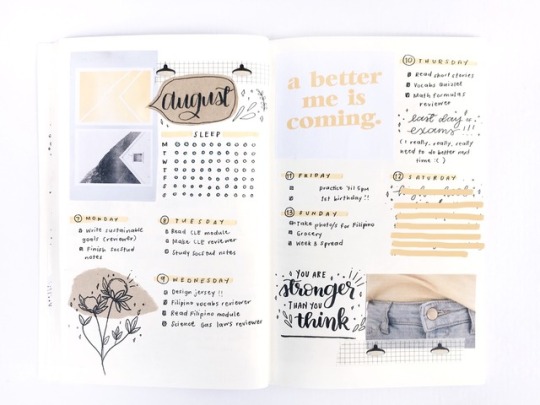 august
SLEEP
M
T
W
T
F
S
S
7 MONDAY
Write sustainable
goals (reviewer)
Finish SocStud
notes
8 TUESDAY
Read CLE module
Make CLE reviewer
Study SocStud notes
9 WEDNESDAY
Design jersey !!
Filipino vocabs reviewer
Read Filipino module
Science Gas laws reviewer
a better
me is
coming.
10 THURSDAY
Read short stories
Vocabs Quizlet
Math formulas
reviewer
last day of
exams!!!
(I really, really, really
need to do better next
time :( )
11 FRIDAY
practice 'til 5pm
1st birthday !!
12 SATURDAY
13 SUNDAY
Take photo/s for Filipino
Grocery
Week 3 spread
YOU ARE
stronger
THAN YOU
think